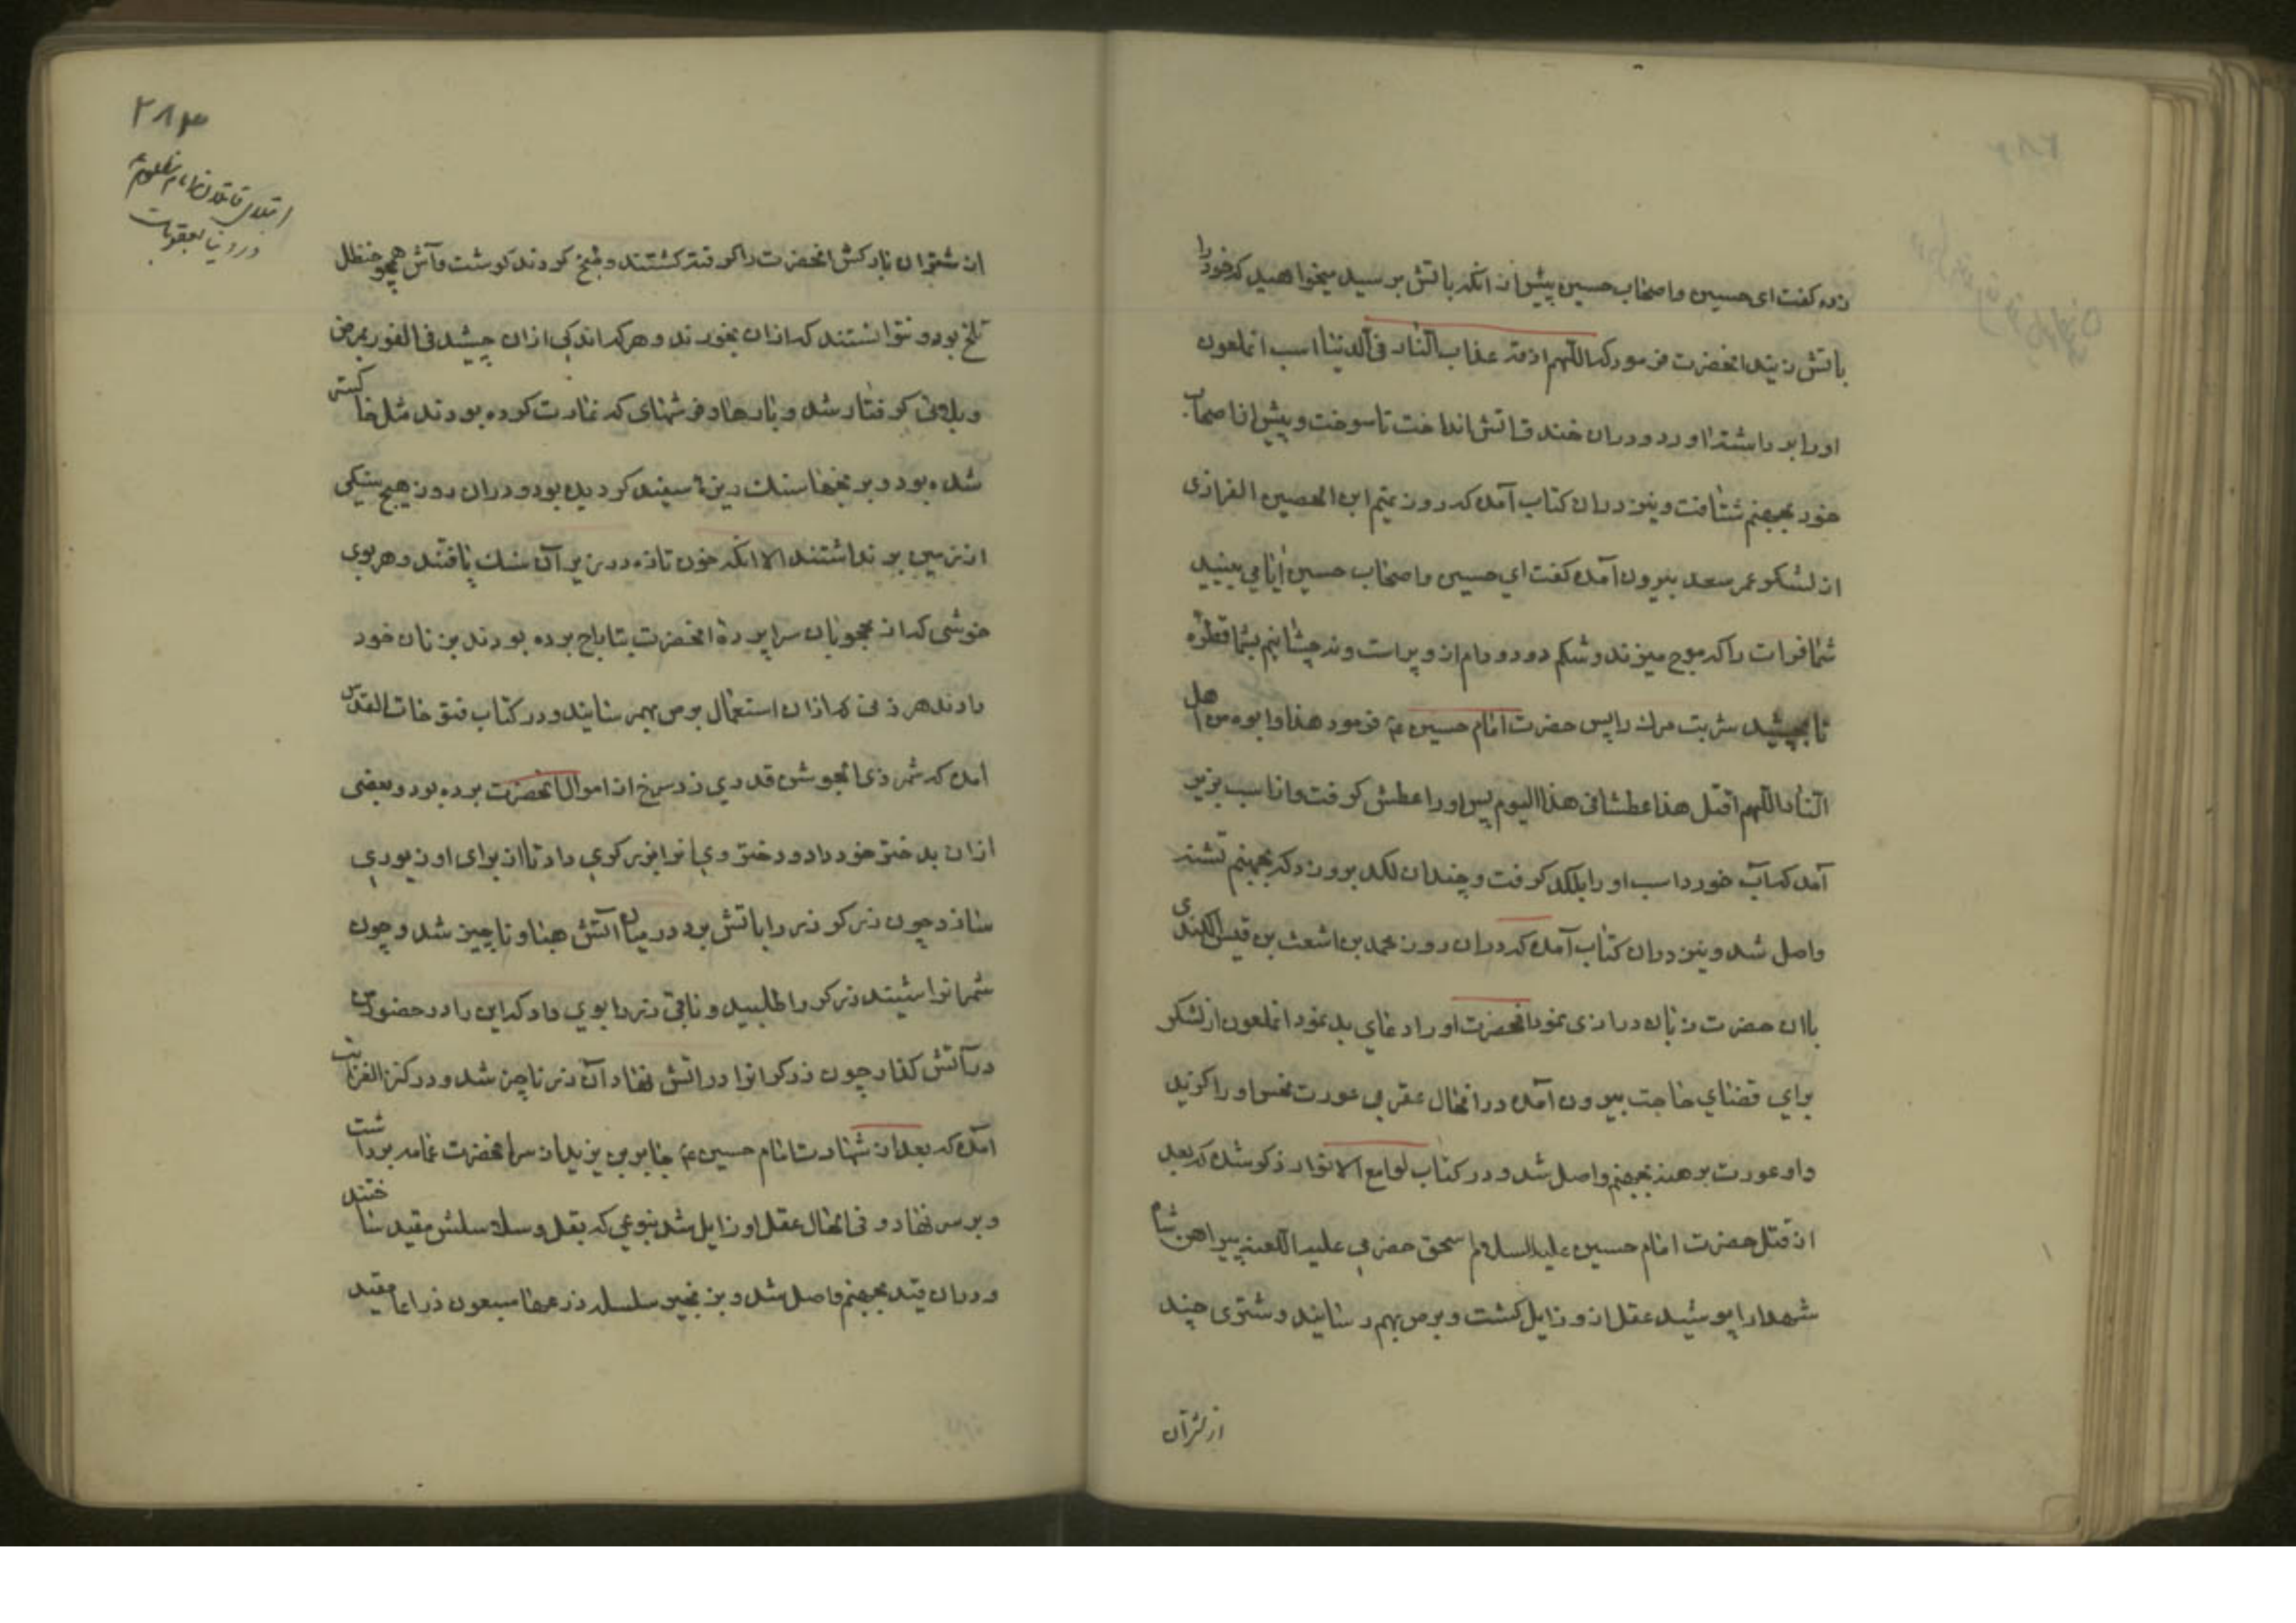 زده كفت اى حسين واصحاب حسين پيش از انكه باتش برسيد ميخواهيد كه خود را
باتش زنيد انحضرت فرمود كه اللّهم اذقه عذاب النار فى الدنيا اسب انملعون
اورا برداشته اورد ودران خندق اتش انداخت تا سوخت وپيش از اصحاب
خود بجهنم شتافت ونيز دران كتاب آمده كه روز تميم ابن الحصين الفزارى
از لشكر عمر سعد بيرون آمده كفت اي حسين واصحاب حسين ايا مي بينيد
شما فرات را كه موج ميزند وشكم دد ودام از و پر است ونه چشانيم بشما قطره
تا بچشيد شربت مرك را پس حضرت امام حسين ع فرمود هذا وابوه من اهل
النار اللّهم اقتل هذا عطشا فى هذا اليوم پس اورا عطش كرفت واز اسب بزير
آمد كه آب خورد اسب او را بلكد كرفت وچندان لكد بر و زد كه بجهنم تشنه
واصل شد ونيز دران كتاب آمده كه دران روز محمد بن اشعث بن قيس الكندى
باان حضرت زبان درازى نمود انحضرت او را دعاي بد نمود انملعون از لشكر
براي قضاي حاجت بيرون آمده در انحال عقربي عورت نحس او را كزيد
واو عورت برهنه بجهنم واصل شد و در كتاب لوامع الانوار ذكر شده كه بعد
از قتل حضرت امام حسين عليه السلام اسحق حضرمي عليه اللعنه پيراهن شاه
شهدا را پوشيد عقل از و زايل كشت وبرص بهم رسانيد وشترى چند
از شتران
٢٨٣
ابتلاى قاتلان امام مظلوم ع
در دنيا بعقوبات
از شتران باركش انحضرت را كرفته كشتند وطبخ كردند كوشت وآش همچو حنظل
تلخ بود و نتوانستند كه ازان بخورند و هركه اندكى ازان چشيد فى الفور بمرض
وبلائى كرفتار شد و بارها وفرشهاى كه غارت كرده بودند مثل خاكستر
شده بود و بر نخها سنك ريزهٔ سفيد كرديده بود و دران روز هيچ سنكى
از زمين بر نداشتند الا انكه خون تازه در زير آن سنك يافتند وهر بوى
خوشى كه از محجوبان سراپردهٔ انحضرت بتاراج برده بودند بزنان خود
دادند هر زنى كه ازان استعمال برص بهم رسانيد و در كتاب فتوحات القدس
آمده كه شمر ذى الجوشن قدري زر سرخ از اموال انحضرت برده بود و بعضى
ازان بدختر خود داد و دختر وي انرا بزركري داد تا از براى او زيوري
سازد چون زركر زر را باتش برد در ميان آتش هبا و ناچيز شد و چون
شمر انرا شنيد زركر را طلبيد و باقى زر را بوي داد كه اين را در حضور من
در آتش كذار چون زركر انرا در اتش نهاد آن زر ناچيز شد و در كنز الغرائب
آمده كه بعد از شهادت امام حسين ع جابر بن يزيد از سر انحضرت عمامه برداشت
و بر سر نهاد و فى الحال عقل او زايل شد بنوعي كه بغل و سلاسلش مقيد ساختند
و دران قيد بجهنم واصل شد و بزنجير سلسله ذرعها سبعون ذراعا مقيد